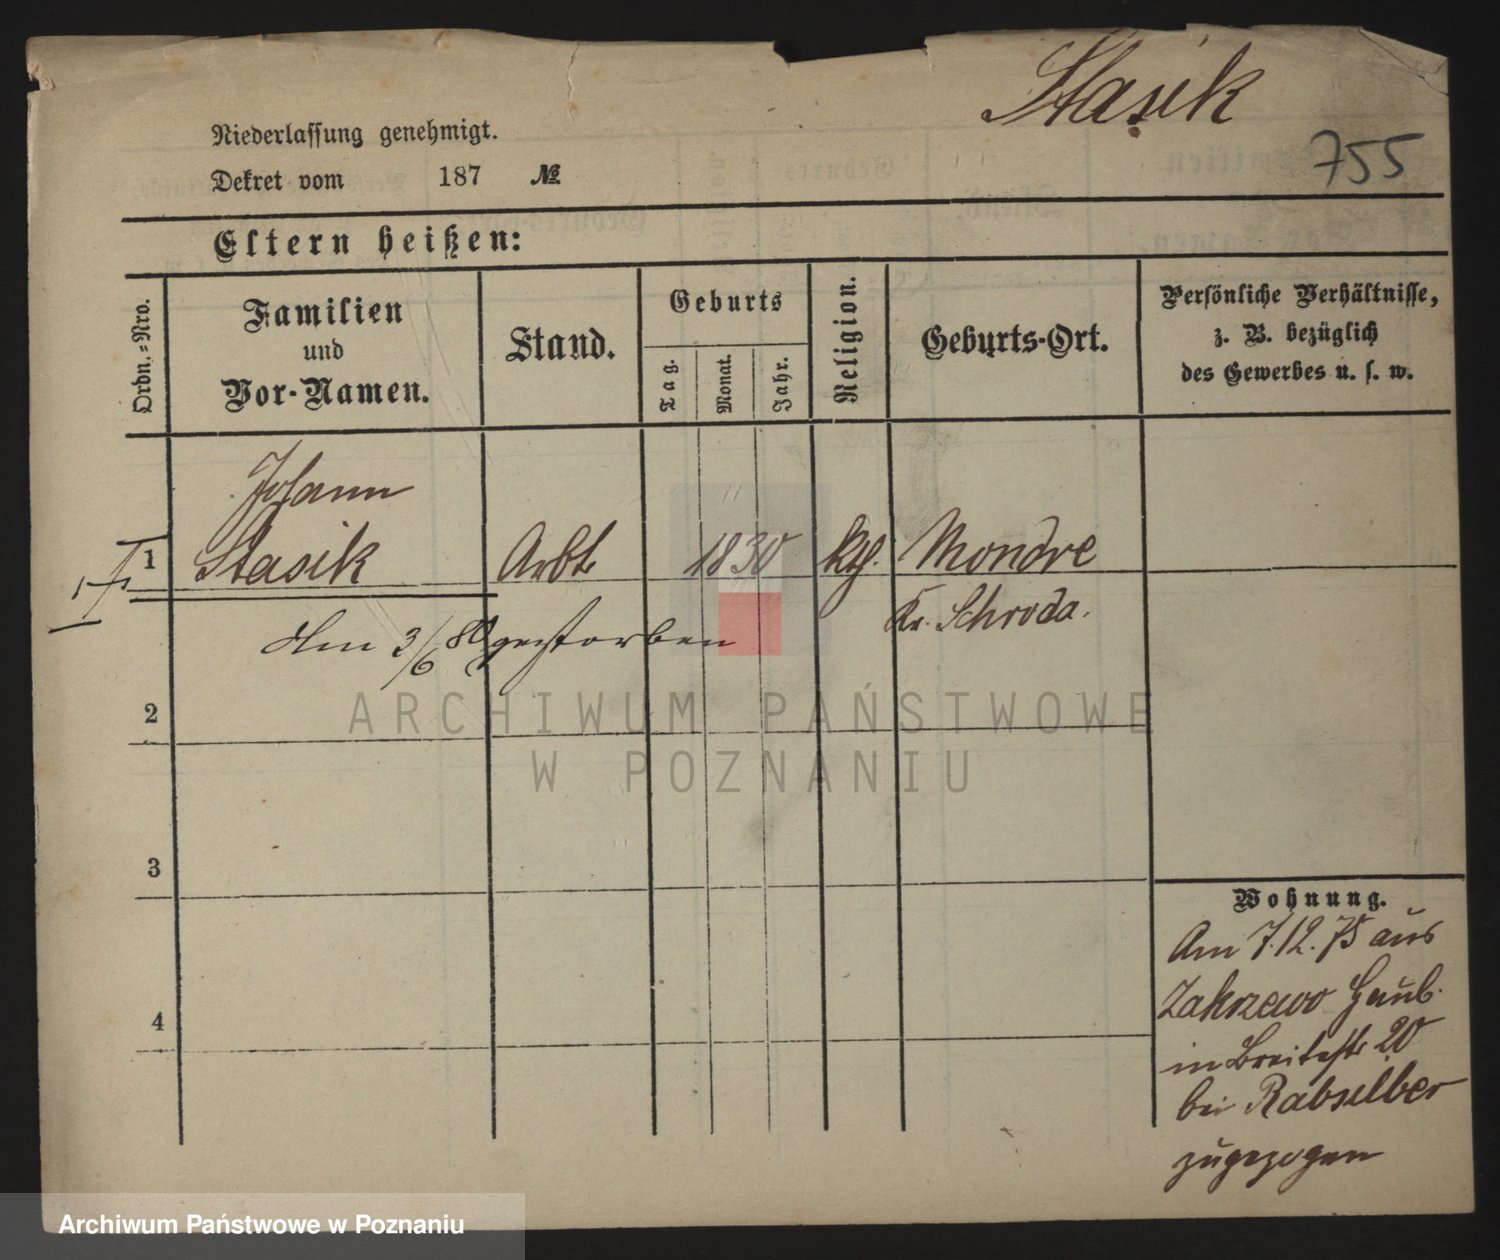 Stasik
755
Niederlassung genehmigt.
Dekret vom 187 №
Eltern heißen:
Ordn.-Nro.
Familien
und
Vor-Namen.
Stand.
Geburts
Tag.
Monat.
Jahr.
Religion.
Geburts-Ort.
Persönliche Verhältnisse,
z. B. bezüglich
des Gewerbes u. s. w.
Johann
1 Stasik Arbt. 1830 kth. Mondre
Kr. Schroda.
Am 3/6 80 gestorben
2
3
4
Wohnung.
Am 7.12.75 aus
Zakrzewo
in Breitestr 20
bei Rabsilber
zugezogen
ARCHIWUM PAŃSTWOWE
W POZNANIU
Archiwum Państwowe w Poznaniu